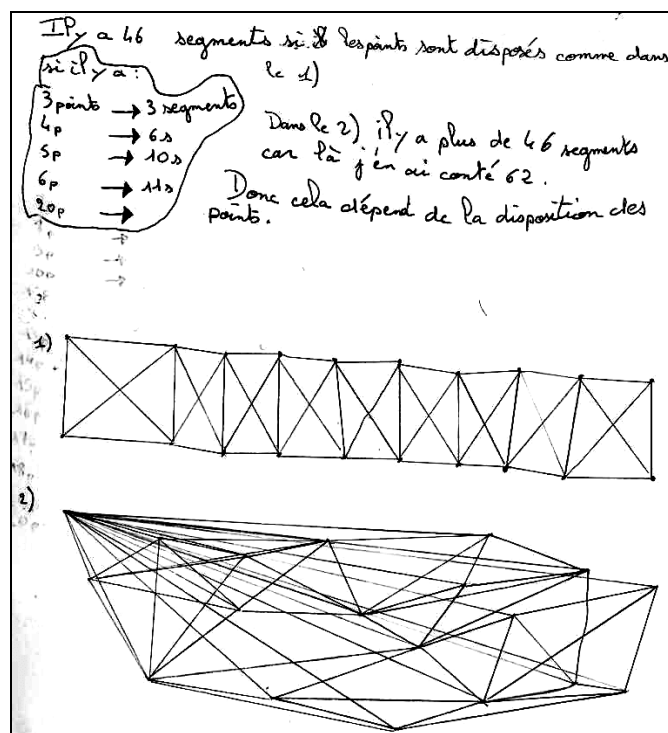 Il y a 46 segments si les points sont disposés comme dans
le 1)
si il y a :
3 points → 3 segments
4p → 6s
5p → 10s
6p → 11s
20p →
Dans le 2) il y a plus de 46 segments
car là j'en ai conté 62.
Donc cela dépend de la disposition des
points.
1)
2)